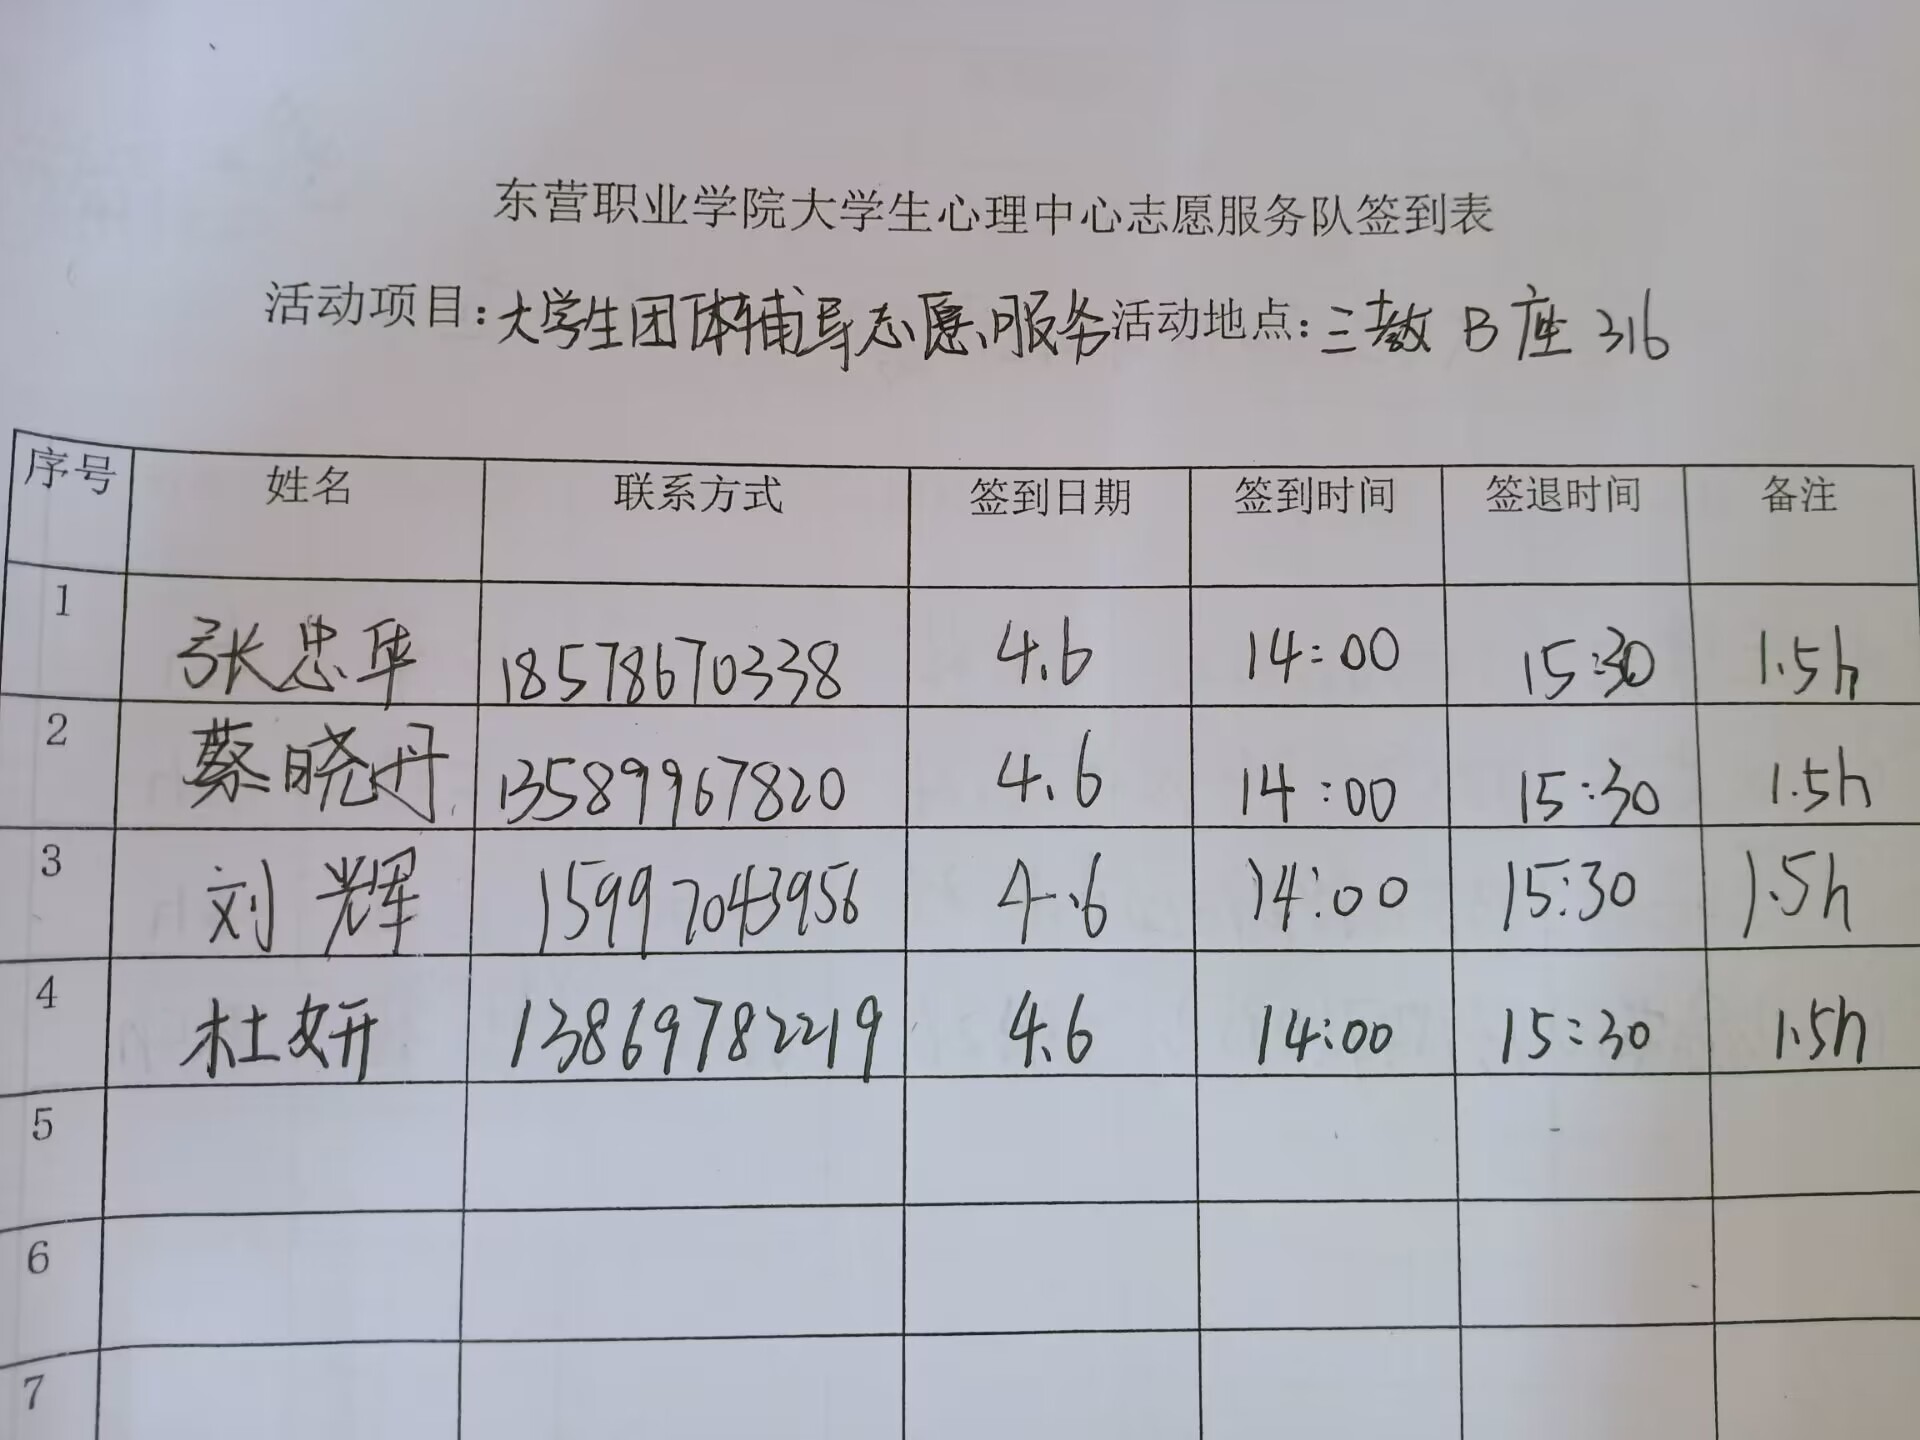 东营职业学院大学生心理中心志愿服务队签到表
活动项目:大学生团体辅导志愿服务活动地点:三教 B 座 316
序号 姓名 联系方式 签到日期 签到时间 签退时间 备注
1 张忠华 18578670338 4.6 14:00 15:30 1.5h
2 蔡晓丹 13589967820 4.6 14:00 15:30 1.5h
3 刘辉 15997043956 4.6 14:00 15:30 1.5h
4 杜妍 13869782219 4.6 14:00 15:30 1.5h
5
6
7